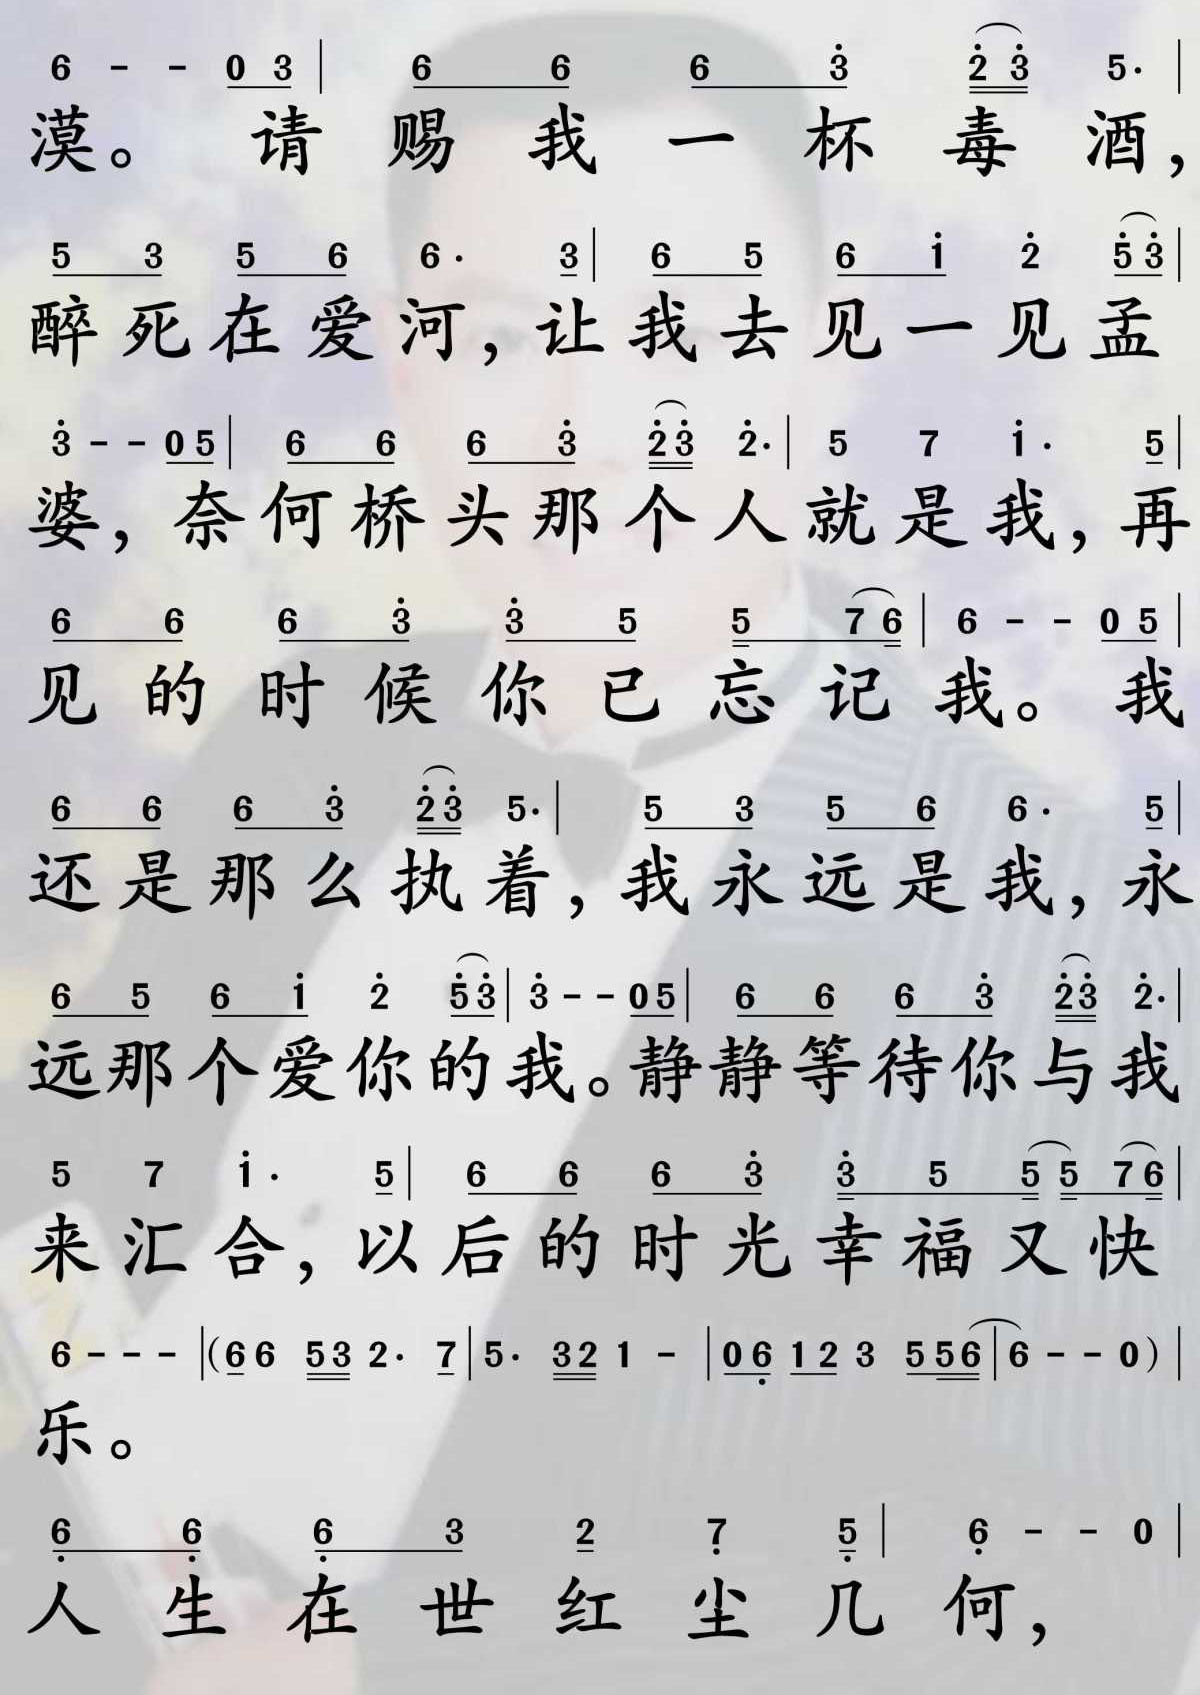 6 - - 0 3 | 6 6 6 3̇ 2̇ 3̇ 5· |
漠。 请 赐 我 一 杯 毒 酒，
5 3 5 6 6· 3 | 6 5 6 1̇ 2̇ 5̇ 3̇ |
醉 死 在 爱 河，让 我 去 见 一 见 孟
3̇ - - 0 5 | 6 6 6 3̇ 2̇ 3̇ 2̇· | 5 7 1̇· 5 |
婆，奈 何 桥 头 那 个 人 就 是 我，再
6 6 6 3̇ 3̇ 5 5 7 6 | 6 - - 0 5 |
见 的 时 候 你 已 忘 记 我。 我
6 6 6 3̇ 2̇ 3̇ 5· | 5 3 5 6 6· 5 |
还 是 那 么 执 着，我 永 远 是 我，永
6 5 6 1̇ 2̇ 5̇ 3̇ | 3̇ - - 0 5 | 6 6 6 3̇ 2̇ 3̇ 2̇· |
远 那 个 爱 你 的 我。静 静 等 待 你 与 我
5 7 1̇· 5 | 6 6 6 3̇ 3̇ 5 5 5 7 6 |
来 汇 合，以 后 的 时 光 幸 福 又 快
6 - - - | (6 6 5 3 2· 7 | 5· 3 2 1 - | 0 6̣ 1 2 3 5 5 6 | 6 - - 0) |
乐。
6̣ 6̣ 6̣ 3 2 7̣ 5̣ | 6̣ - - 0 |
人 生 在 世 红 尘 几 何，